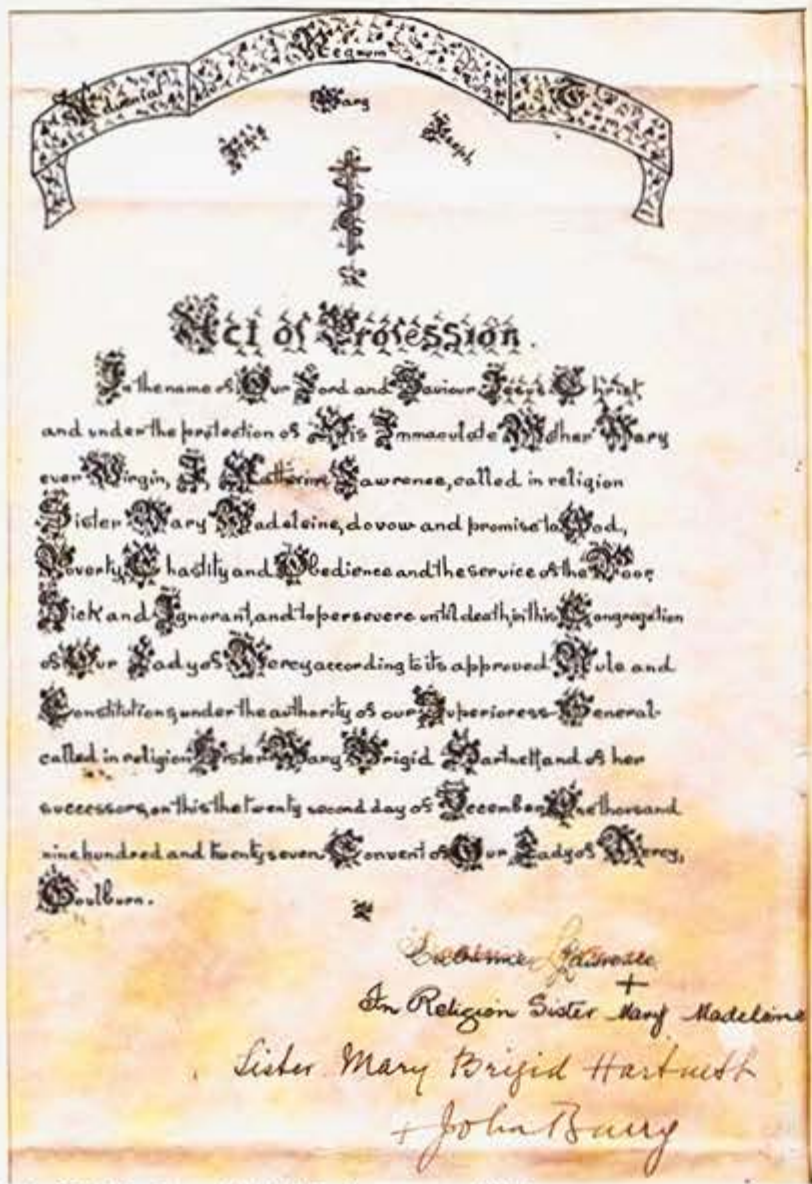 Adveniat Regnum Tuum
Jesus Mary Joseph
Act of Profession.
In the name of Our Lord and Saviour Jesus Christ,
and under the protection of His Immaculate Mother Mary
ever Virgin, I, Katherine Lawrence, called in religion
Sister Mary Madeleine, do vow and promise to God,
Poverty, Chastity and Obedience and the service of the Poor,
Sick and Ignorant, and to persevere until death, in this Congregation
of Our Lady of Mercy according to its approved Rule and
Constitutions, under the authority of our Superioress-General
called in religion Sister Mary Brigid Hartnett, and of her
successors, on this the twenty second day of December, One thousand
nine hundred and twenty seven. Convent of Our Lady of Mercy,
Goulburn.
Lawrence
In Religion Sister Mary Madeleine
Sister Mary Brigid Hartnett
+ John Barry